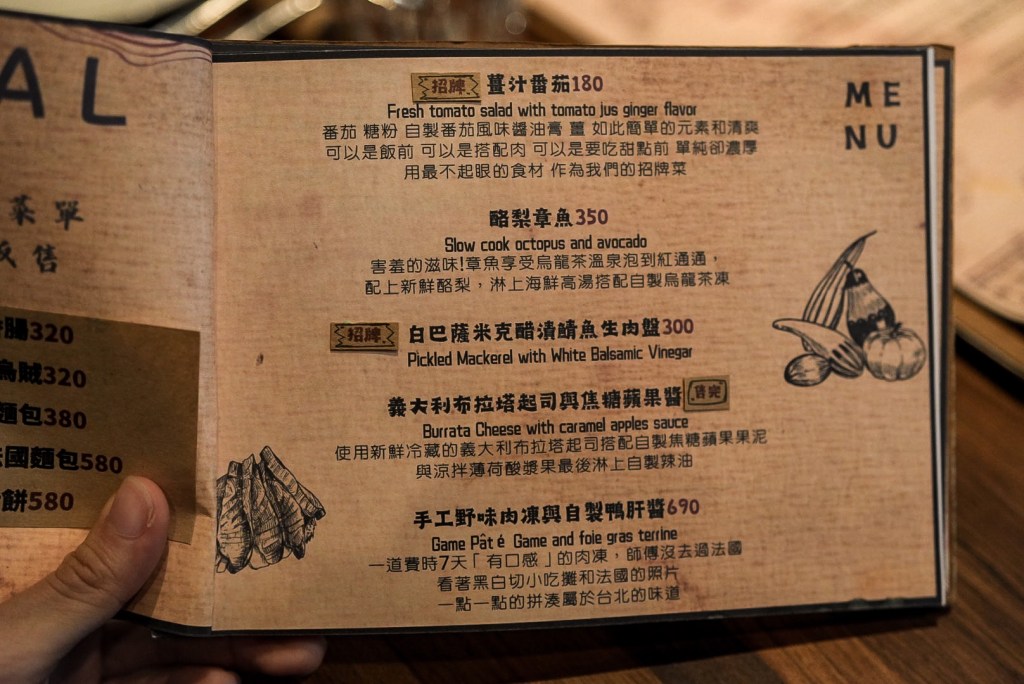 AL
菜單
售
腸320
烏賊320
麵包380
法國麵包580
餅580
ME
NU
招牌 薑汁番茄180
Fresh tomato salad with tomato jus ginger flavor
番茄 糖粉 自製番茄風味醬油膏 薑 如此簡單的元素和清爽
可以是飯前 可以是搭配肉 可以是要吃甜點前 單純卻濃厚
用最不起眼的食材 作為我們的招牌菜
酪梨章魚350
Slow cook octopus and avocado
害羞的滋味!章魚享受烏龍茶溫泉泡到紅通通，
配上新鮮酪梨，淋上海鮮高湯搭配自製烏龍茶凍
招牌 白巴薩米克醋漬鯖魚生肉盤300
Pickled Mackerel with White Balsamic Vinegar
義大利布拉塔起司與焦糖蘋果醬 售完
Burrata Cheese with caramel apples sauce
使用新鮮冷藏的義大利布拉塔起司搭配自製焦糖蘋果果泥
與涼拌薄荷酸漿果最後淋上自製辣油
手工野味肉凍與自製鴨肝醬690
Game Pât é Game and foie gras terrine
一道費時7天「有口感」的肉凍，師傅沒去過法國
看著黑白切小吃攤和法國的照片
一點一點的拼湊屬於台北的味道